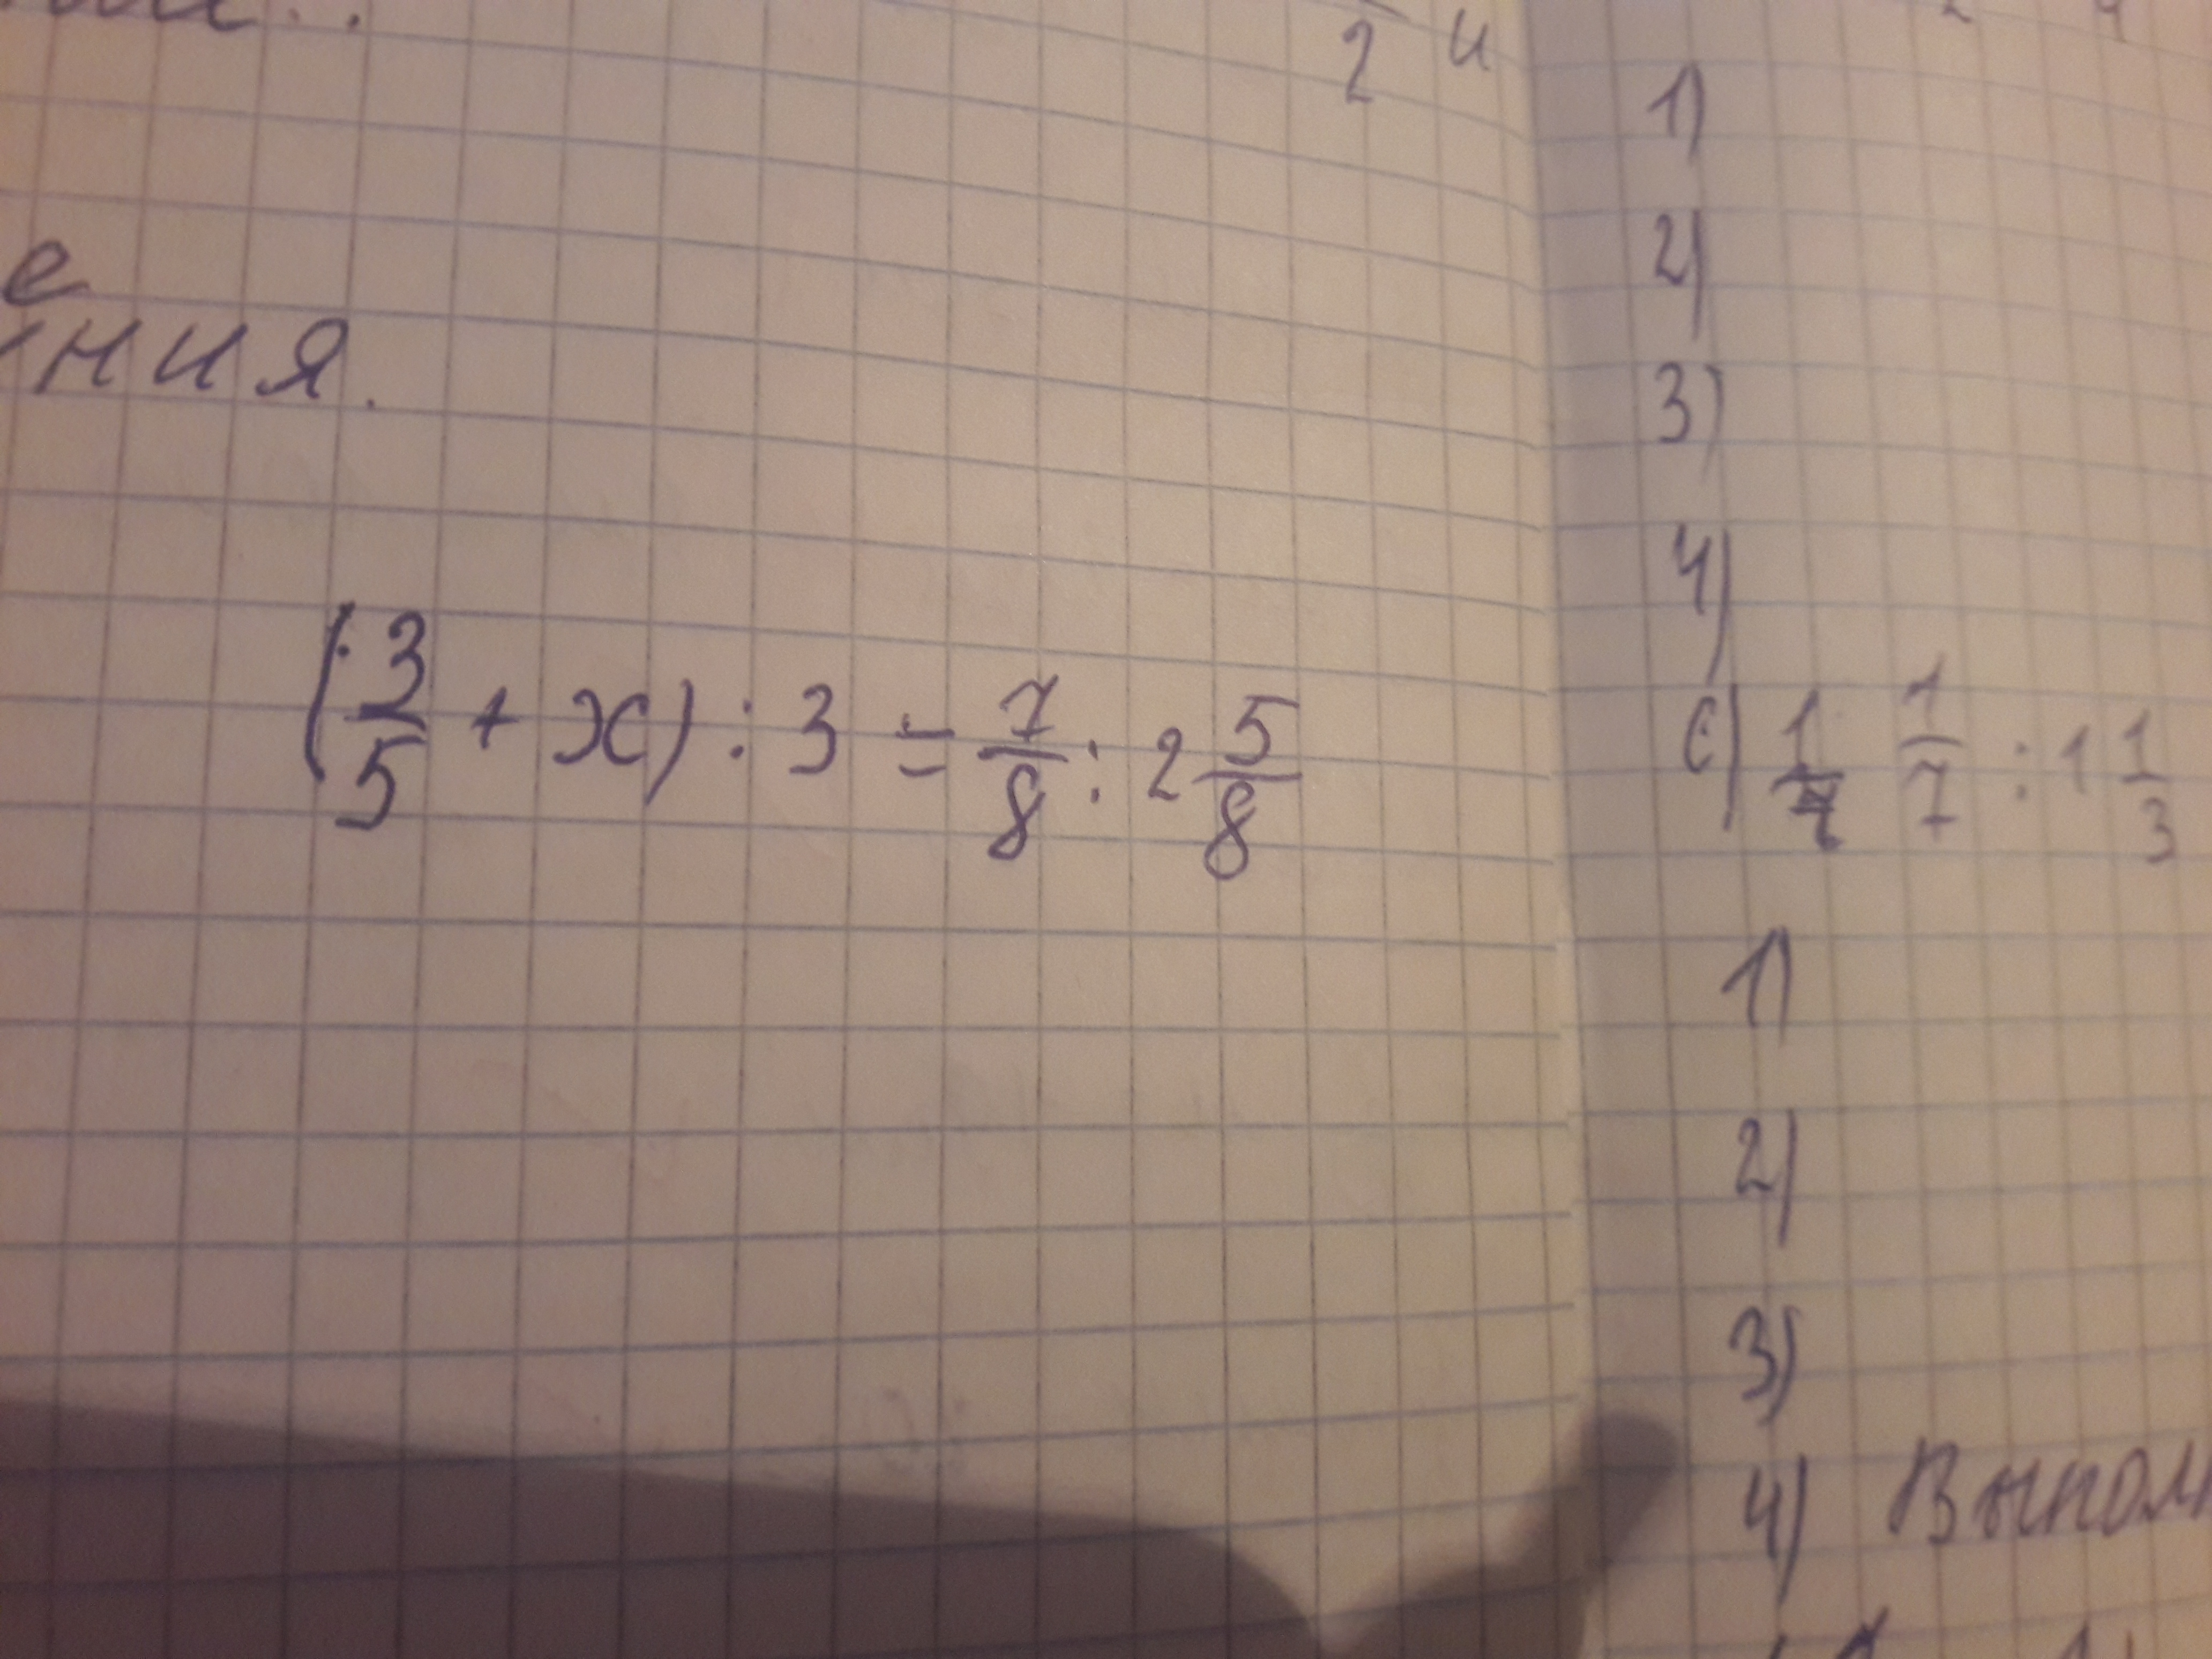 2 и
е
ния.
(3/5 + x) : 3 = 7/8 : 2 5/8
1)
2)
3)
4)
с) 1/7 : 1 1/3
1)
2)
3)
4) Выпол